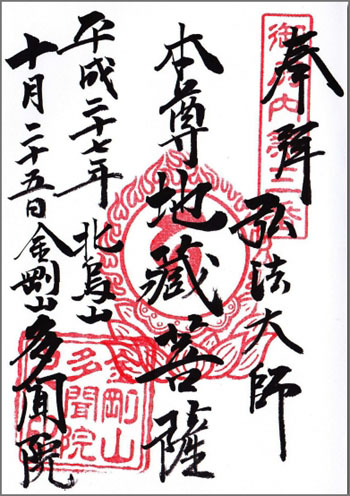 奉拝
弘法大師
本尊地蔵菩薩
北烏山
平成二十七年
十月二十五日
金剛山多聞院
金剛山
多聞院